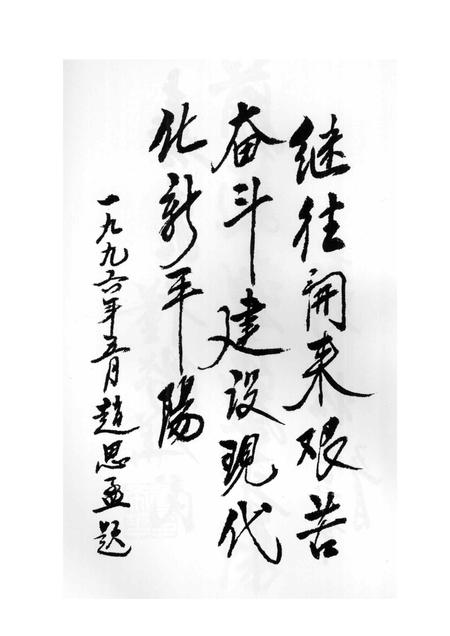 继往开来艰苦
奋斗建设现代
化新平陽
一九九六年五月趙思孟题